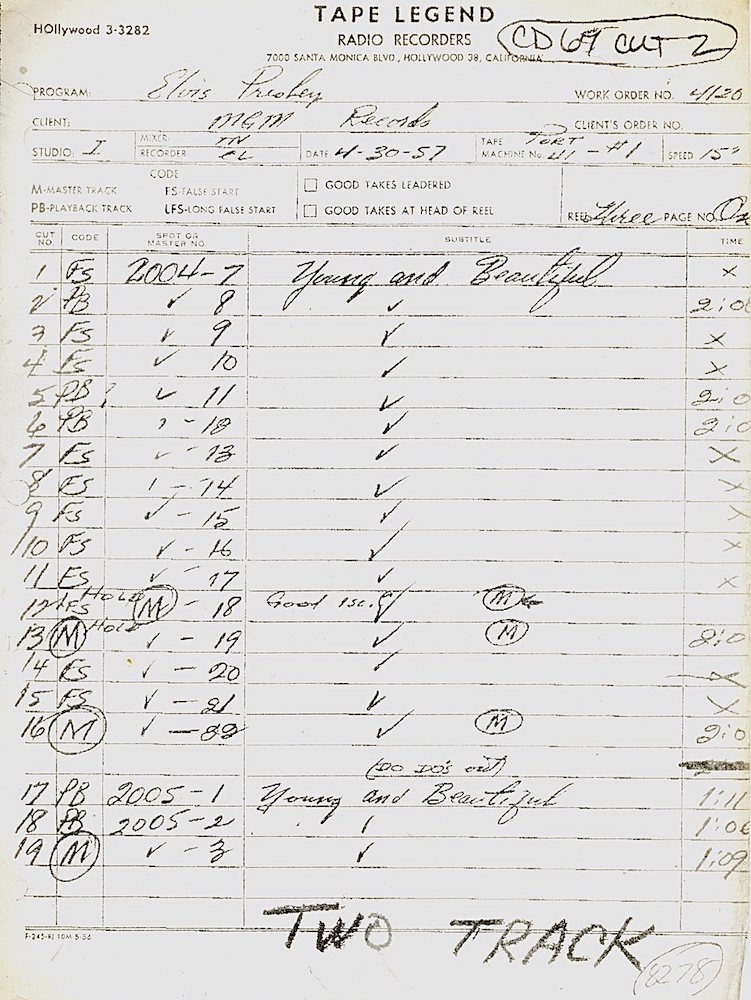 TAPE LEGEND
HOllywood 3-3282
RADIO RECORDERS
CD 69 CUT 2
7000 SANTA MONICA BLVD., HOLLYWOOD 38, CALIFORNIA
PROGRAM: Elvis Presley WORK ORDER NO. 4120
CLIENT: MGM Records CLIENT'S ORDER NO.
STUDIO: I MIXER RECORDER DATE 4-30-57 TAPE MACHINE No. PORT 41 - #1 SPEED 15"
CODE
M-MASTER TRACK FS-FALSE START GOOD TAKES LEADERED
PB-PLAYBACK TRACK LFS-LONG FALSE START GOOD TAKES AT HEAD OF REEL REEL three PAGE NO.
CUT NO. CODE SPOT OR MASTER NO. SUBTITLE TIME
1 FS 2004-7 Young and Beautiful X
2 PB ✓ 8 ✓
3 FS ✓ 9 ✓ X
4 FS ✓ 10 ✓ X
5 PB ✓ 11 ✓
6 PB ✓
7 FS ✓ - 13 ✓ X
8 FS - 14 ✓ X
9 FS ✓ - 15 ✓ X
10 FS ✓ - 16 ✓ X
11 FS ✓ - 17 ✓ X
12 FS HOLD M - 18 Good M
13 M HOLD ✓ - 19 ✓ M
14 FS ✓ - 20 ✓ X
15 FS ✓ - 21 ✓ X
16 M ✓ - 22 ✓ M
(DO DO'S out)
17 PB 2005-1 Young and Beautiful 1:11
18 PB 2005-2 1:06
19 M ✓ - 3 ✓ 1:09
TWO TRACK
F-245-RI 10M 5-56
8278